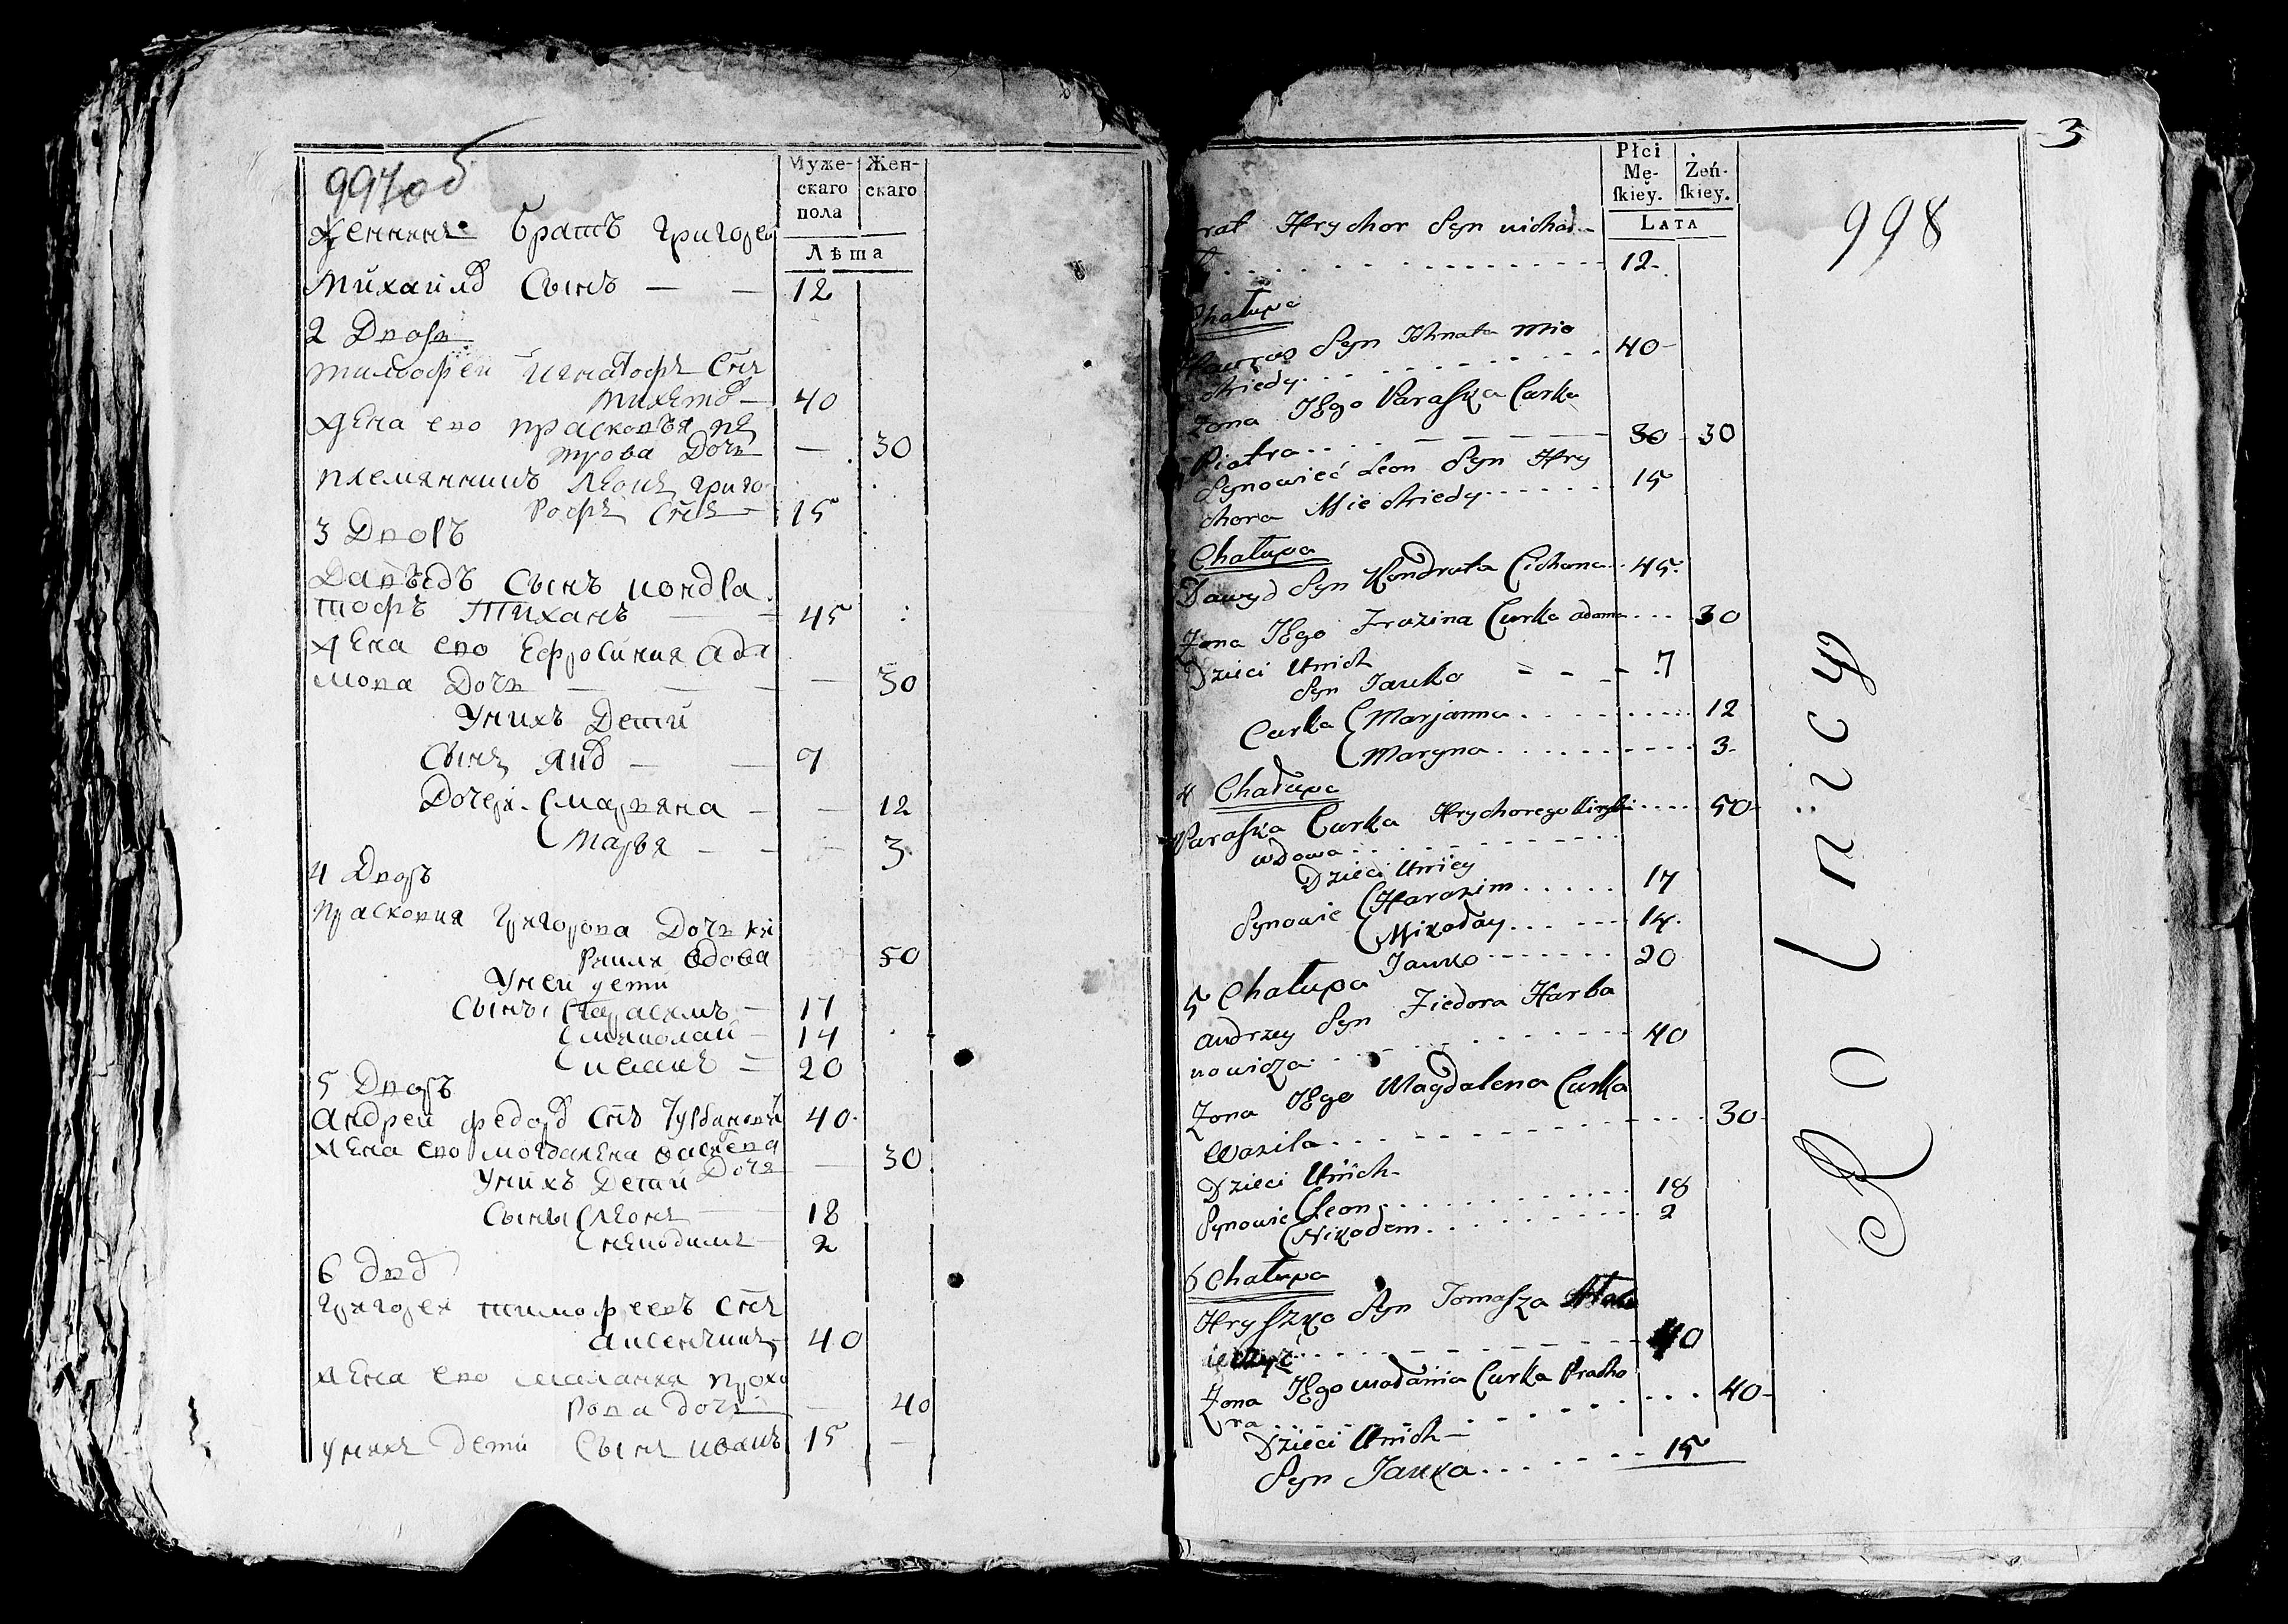 997об
Муже-
скаго
пола
Жен-
скаго
Лѣта
Женинъ братъ григорей
михаилъ Сынъ — — 12
2 Дворъ
40
Жена ево прасковья пе
трова Дочь — 30
племянникъ Леонъ григо
рофъ Снъ — 15
3 Дворъ
Давыдъ Сынъ кондра
тофъ Тиханъ — — 45
Жена ево Ефросиния ада
мова Дочь — — — 30
Унихъ Дети
Сынъ Яко — —
Дочери (марьяна — — 12
(Марья — — 3
4 Дворъ
прасковия григорова Дочь ки
вдова 50
Уней дети
Сыны (герасимъ — 17
(миколай — 14
(иванъ — 20
5 Дворъ
андрей федоръ Снъ 40
Жена ево магдалена
Дочь — 30
Унихъ Дети
Сыны (леонъ — 18
(никодимъ — 2
6 двр
григорей тимофеевъ Снъ
40
Жена ево маланья прохо
рова дочь — 40
унихъ дети Сынъ иванъ 15 —
3
998
Płci
Mę-
ſkiey.
Żeń-
ſkiey.
LATA
rat Hrychor Syn
12
Chałupa
Syn Ihnata Mie
chiedy 40
Zona Jego Paraſka Curka
Piotra 30 30
Synowieć Leon Syn Hry
chora Miechiedy 15
Chałupa
Dawyd Syn Kondrata Cichona 45
Zona Jego Frozina Curka adama 30
Dzieci Unich
Syn Janko 7
Curka (Marjanna 12
(Maryna 3
4 Chałupa
Paraſka Curka Hrychorego 50
wdowa
Dzieci Uniey
Synowie (Harazim 17
(Mikołay 14
Janko 20
5 Chałupa
Andrzey Syn Fiedora Harba
nowicza 40
Zona Jego Magdalena Curka
Wasila 30
Dzieci Unich
Synowie (Leon 18
(Nikodem 2
6 Chałupa
Hryſzko Syn Tomaſza
40
Zona Jego Curka Procho
ra 40
Dzieci Unich
Syn Janka 15